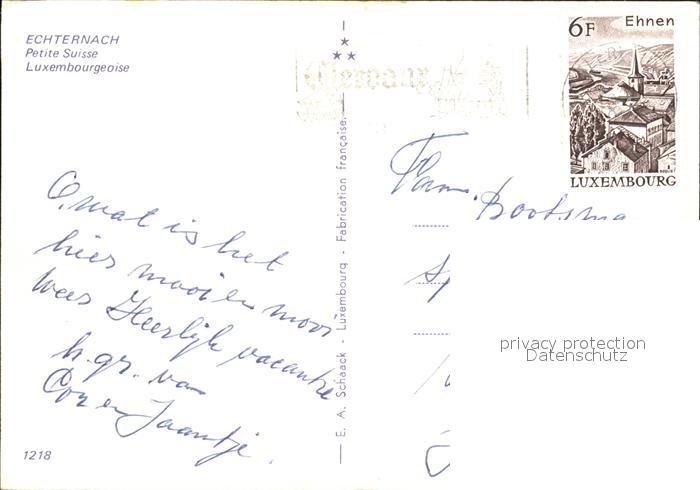 ECHTERNACH
Petite Suisse
Luxembourgeoise
6F Ehnen
LUXEMBOURG
O, wat is het
hier mooi en mooi
weer Heerlijk vacantie
h. gr. van
Cor en Jaantje.
Fam. Bootsma
E. A. Schaack - Luxembourg - Fabrication française.
privacy protection
Datenschutz
1218